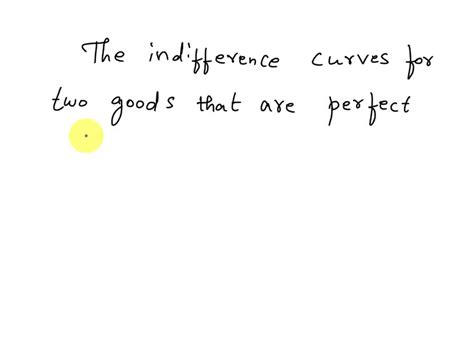 The indifference curves for
two goods that are perfect